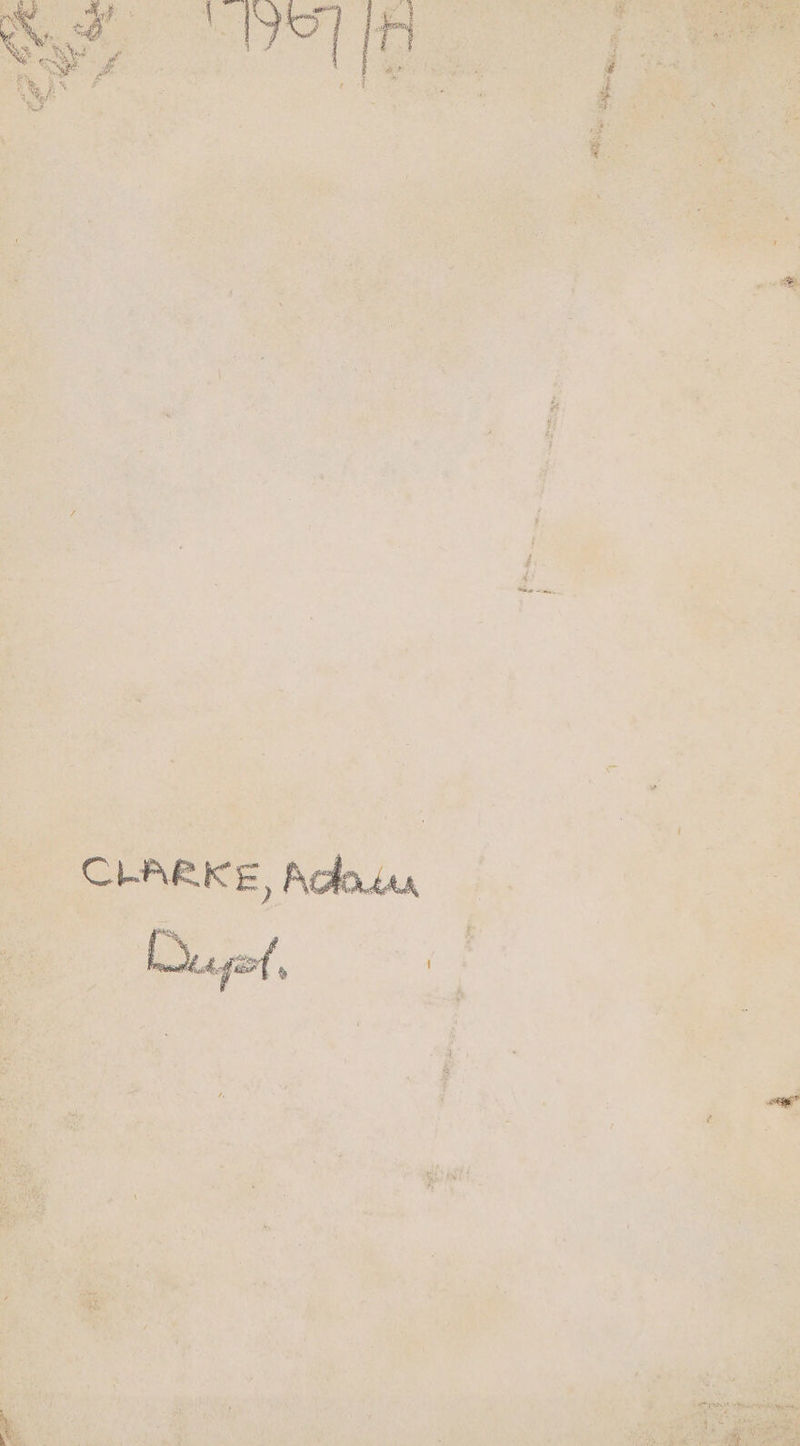 17967/A
CLARKE, Adam
Dupl.